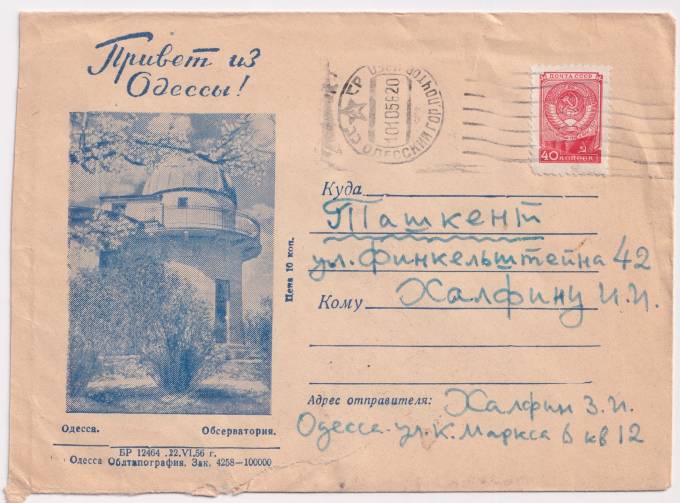 Привет из
Одессы!
ПОЧТА СССР
40 КОПЕЕК
СССР
ОДЕССКИЙ ГОР. ПОЧТАМТ
Куда
Ташкент
ул. Финкельштейна 42
Кому Халфину И.И.
Цена 10 коп.
Адрес отправителя: Халфин З.И.
Одесса ул. К. Маркса 6 кв 12
Одесса. Обсерватория.
БР 12464 .22.VI.56 г.
Одесса Облтапография. Зак. 4258—100000